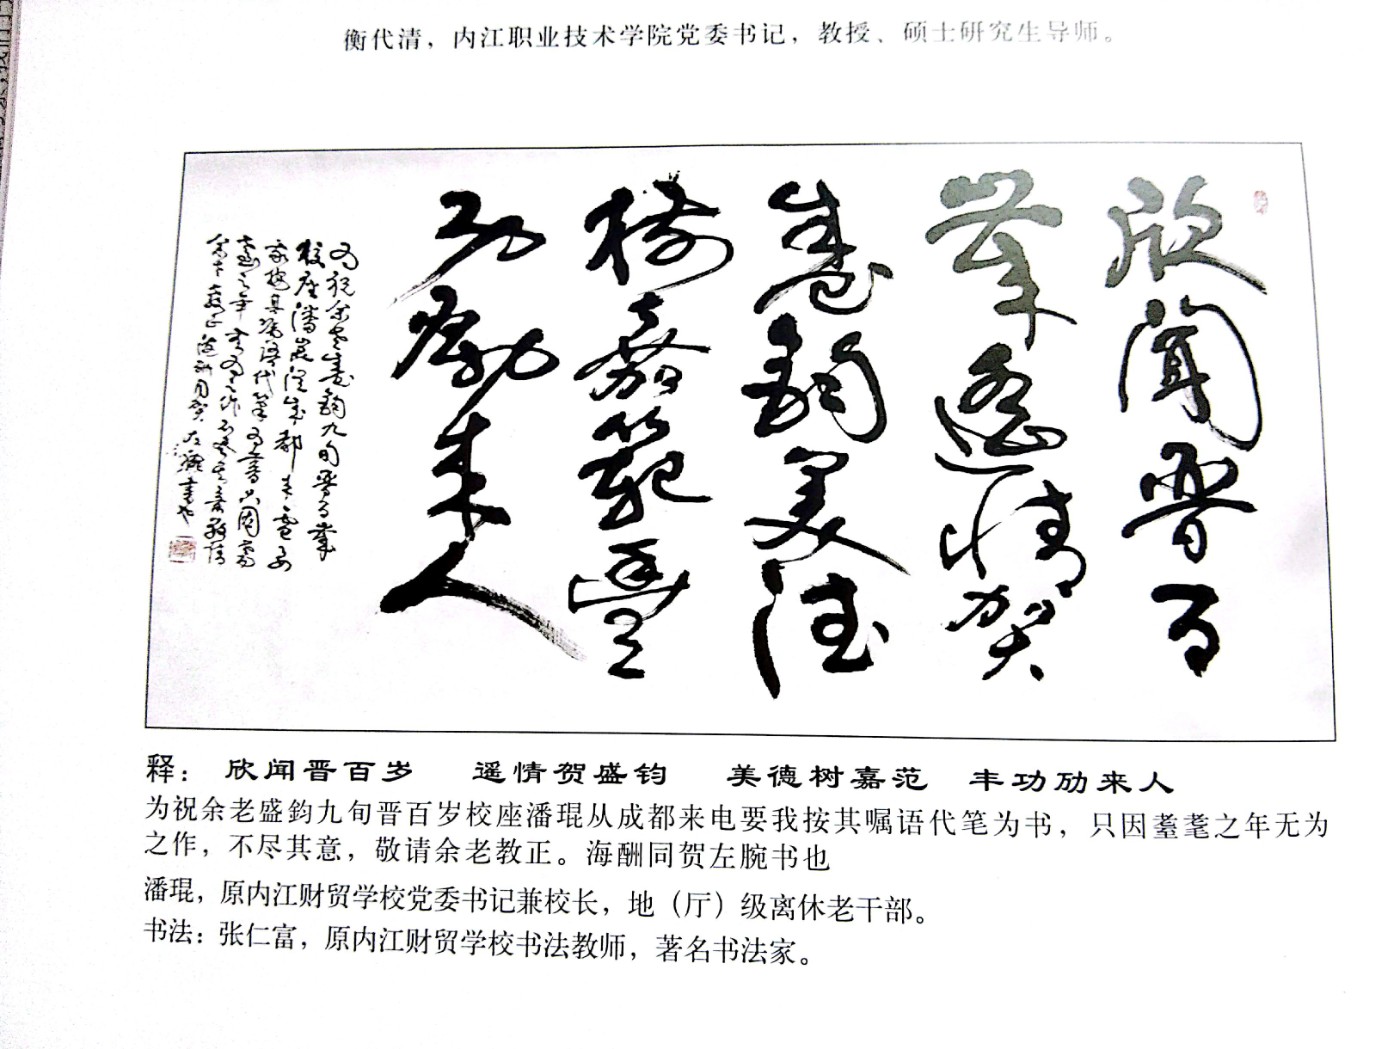 衡代清，内江职业技术学院党委书记，教授、硕士研究生导师。
欣闻晋百
岁遥情贺
盛鈞美德
樹嘉範豐
功劢来人
为祝余老盛鈞九旬晋百岁
校座潘崑从成都来电要
我按其嘱语代笔为书只因耄
耋之年无为之作不尽其意敬请
余老教正海酬同贺左腕书也
释： 欣闻晋百岁 遥情贺盛钧 美德树嘉范 丰功劢来人
为祝余老盛鈞九旬晋百岁校座潘琨从成都来电要我按其嘱语代笔为书，只因耋耄之年无为
之作，不尽其意，敬请余老教正。海酬同贺左腕书也
潘琨，原内江财贸学校党委书记兼校长，地（厅）级离休老干部。
书法：张仁富，原内江财贸学校书法教师，著名书法家。